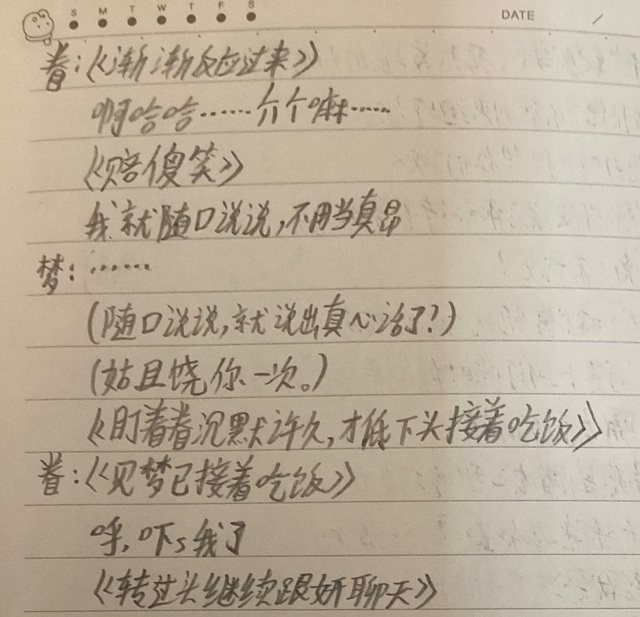 S M T W T F S
DATE /
眷:《渐渐反应过来》
啊哈哈……介个嘛……
《赔傻笑》
我就随口说说,不用当真昂
梦:……
(随口说说,就说出真心话了?)
(姑且饶你一次。)
《盯着眷沉默许久,才低下头接着吃饭》
眷:《见梦已接着吃饭》
呼,吓s我了
《转过头继续跟妍聊天》